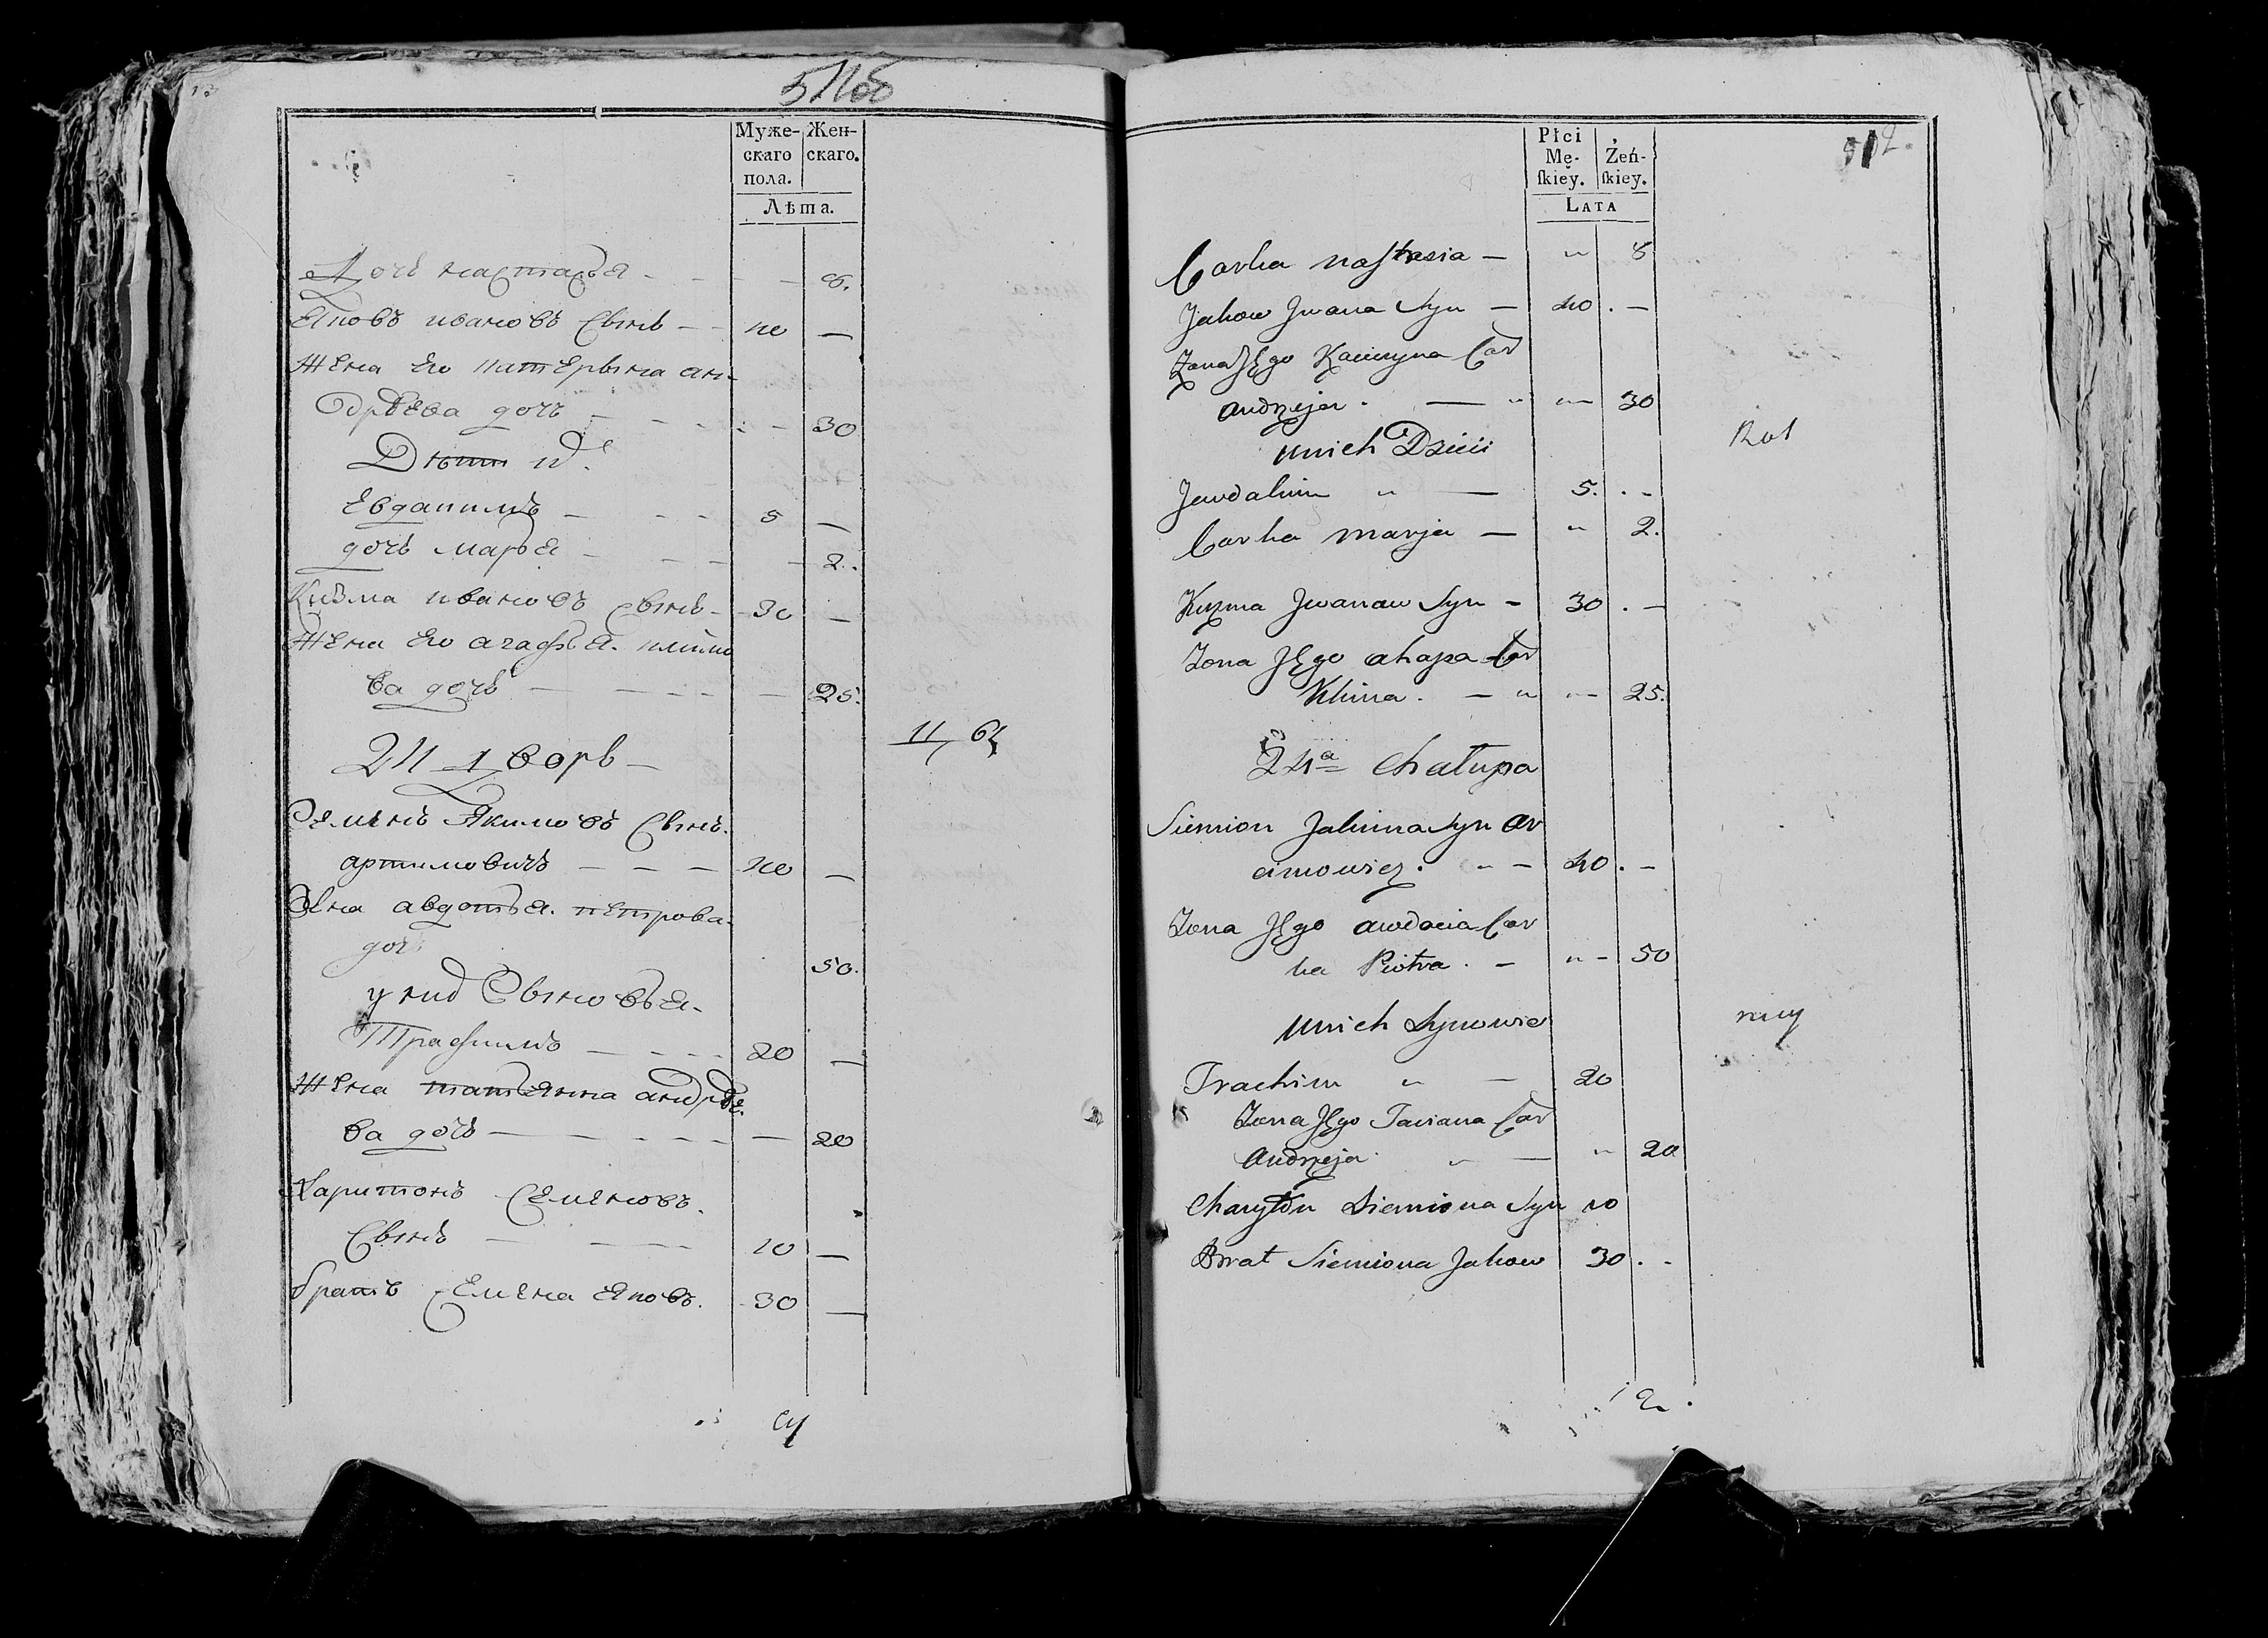 511об
Муже-
скаго
пола.
Жен-
скаго.
Лѣта.
Дочь настасья - - - — 8.
Яковъ ивановъ сынъ - - 40 —
Жена Его катерына ан-
дрѣева дочь - - - - 30
Дѣти ихъ
Евдакимъ — - - 5 —
дочь марья - - - - 2.
Кузма ивановъ сынъ - 30 —
Жена Его агафья климо
ва дочь — - - - — 25.
24 дворъ —
Семенъ Якимовъ сынъ.
артимовичъ — — — 40 —
Жена авдотья. петрова
дочь 50.
у них сыновья.
Трафимъ — - - - 20 —
Жена татьянна андрѣе.
ва дочь — — - - - — 20
Харитонъ семеновъ.
сынъ — — 10 —
братъ семена яковъ. 30 —
11/64
Płci
Mę-
skiey.
Żeń-
skiey.
LATA
512.
Corka nastasia — " 8
Jakow Jwana Syn — 40 . —
Zona Jego Kacieryna Cor
Andrzeja . — " " — 30
Unich Dzieci
Jewdakim " — 5. . -
Corka marja — " 2.
Kuzma Jwanaw Syn - 30 . —
Zona Jego ahapa Cor
Klima . — " " — 25.
24ª Chałupa
Siemion Jakima Syn Ar
cimowicz . " — 40 . —
Zona Jego awdocia Cor
ka Piotra . — " - 50
Unich Synowie
Trachim " — 20
Zona Jego Taciana Cor
Andrzeja . " — " 20
Charyton Siemiona Syn 10
Brat Siemiona Jakow 30 . -